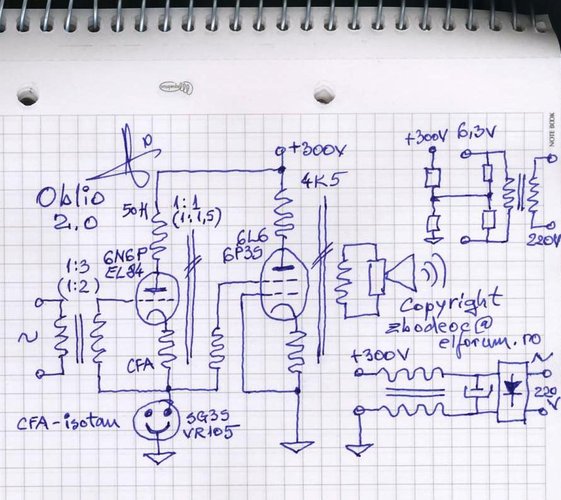 NOTE BOOK
+300V
Oblio
2.0
50H
1:1
(1:1,5)
4K5
+300V
6,3V
220V
6N6P
EL84
6L6
6P3S
1:3
(1:2)
~
CFA
Copyright
zbodeoc@
elforum.ro
CFA-isotan
SG3S
VR105
+300V
~
220
V